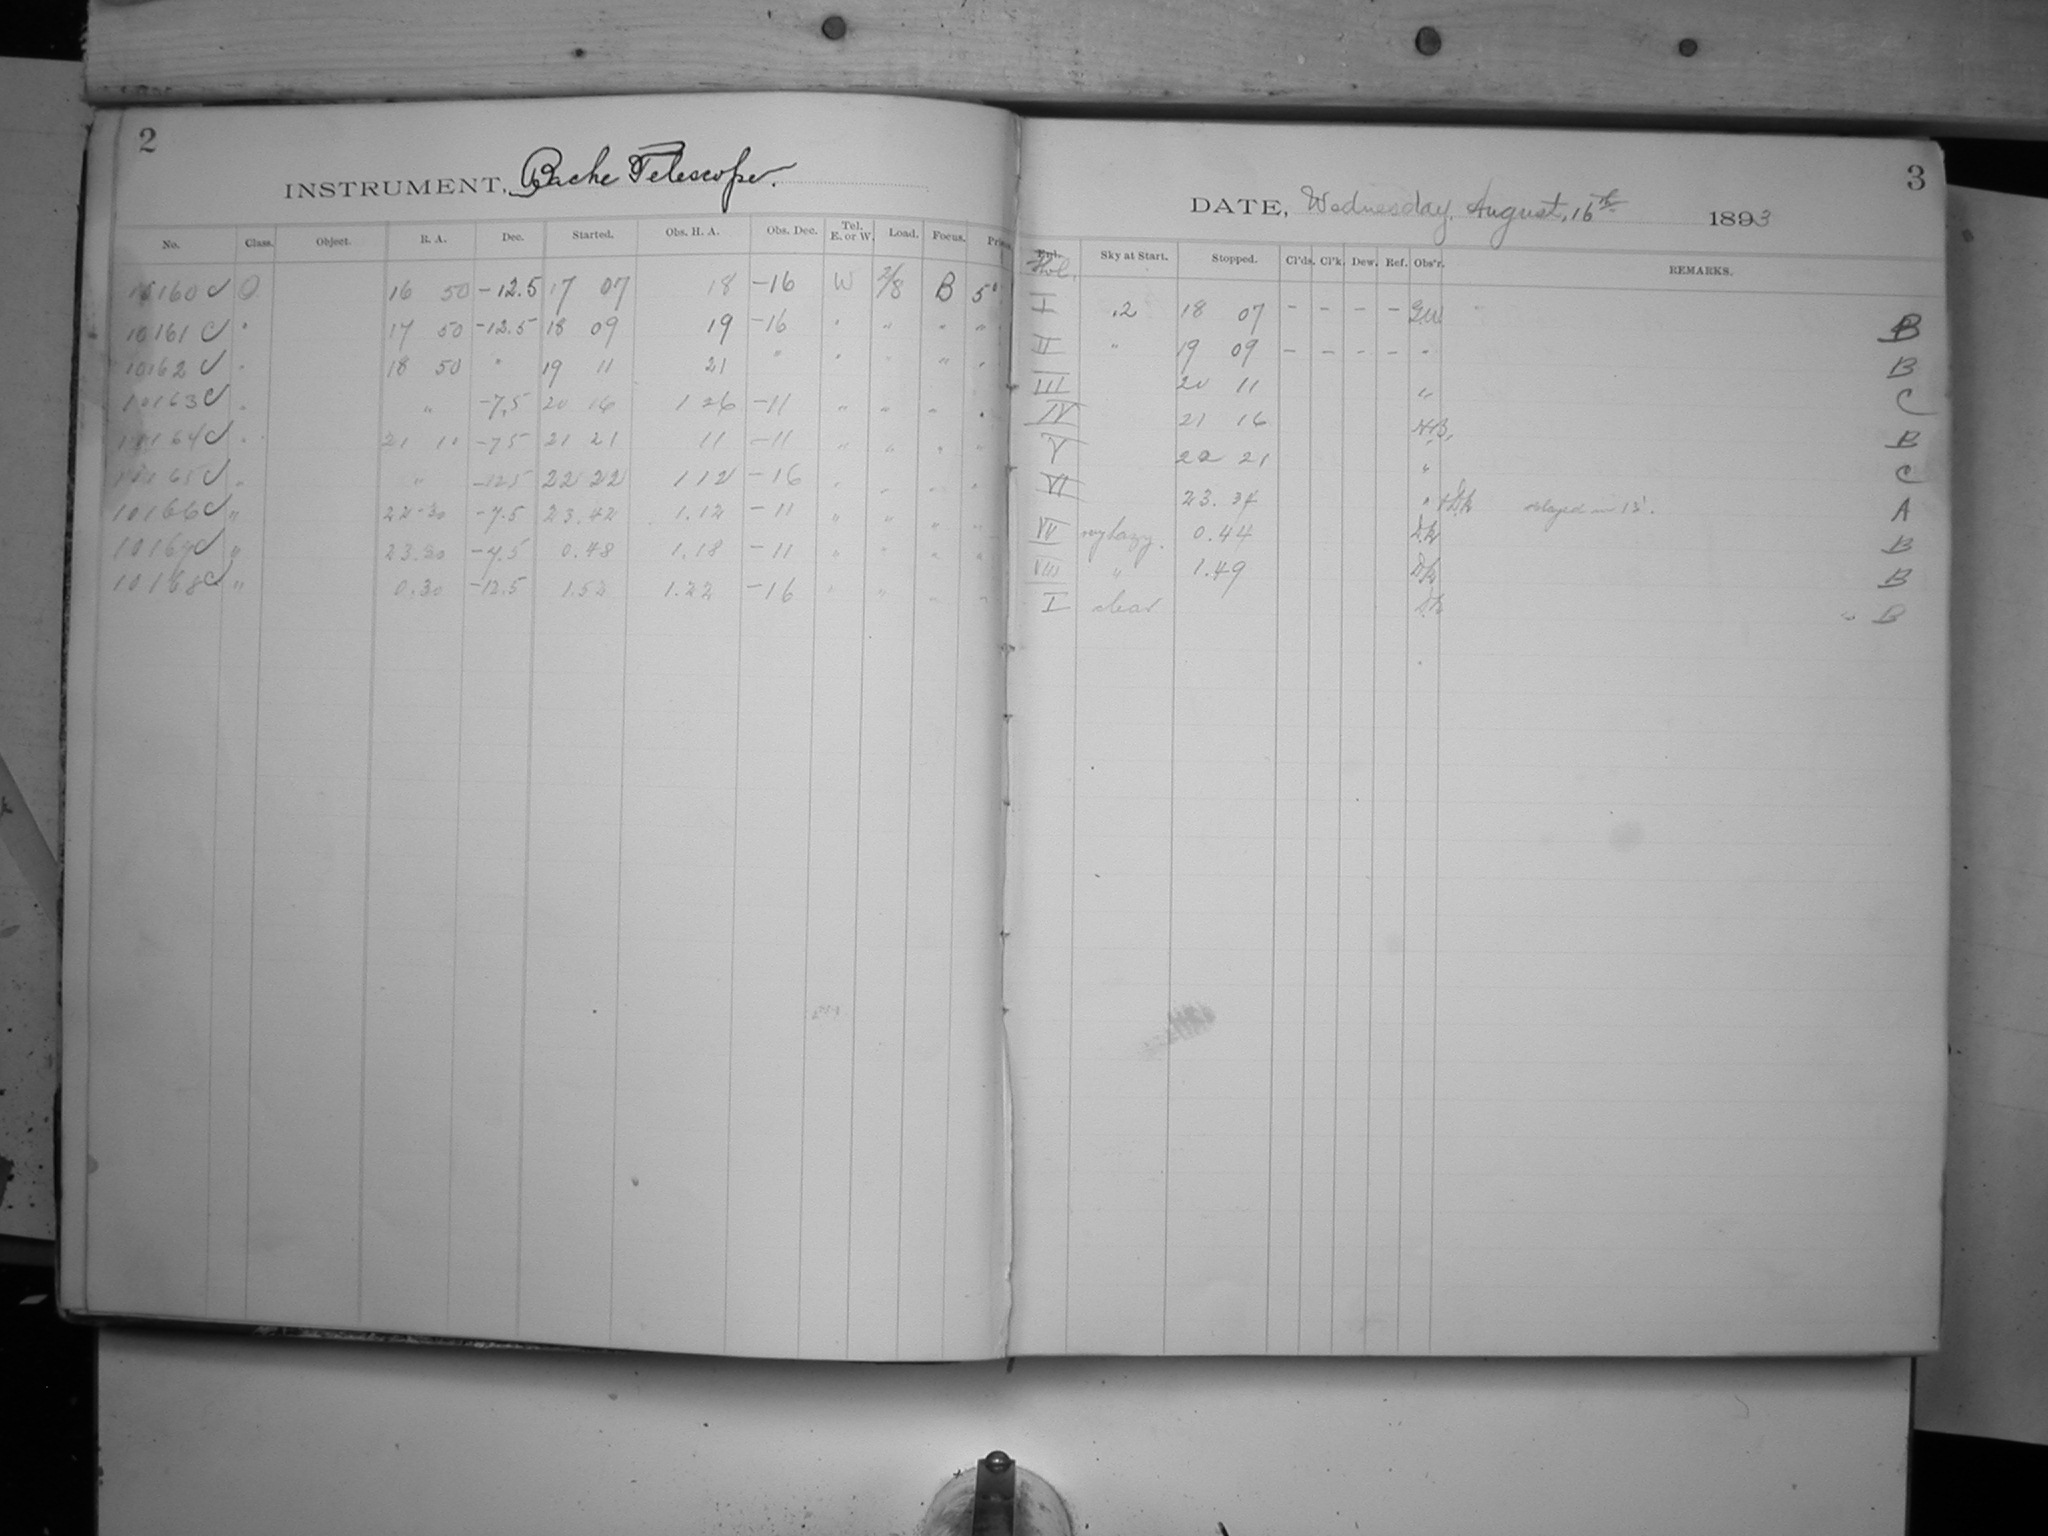 2
INSTRUMENT, Bache Telescope.
No. Class. Object. R. A. Dec. Started. Obs. H. A. Obs. Dec. Tel. E. or W. Load. Focus.
10160 C O 16 50 -12.5 17 07 18 -16 W 2/8 B 5°
10161 C " 17 50 -12.5 18 09 19 -16 " " " "
10162 C " 18 50 " 19 11 21 " " " " "
10163 C " " -7.5 20 16 1 26 -11 " " " "
10164 C " 21 10 -7.5 21 21 11 -11 " " " "
10165 C " " -12.5 22 22 1 12 -16 " " " "
10166 C " 22.30 -7.5 23.42 1.12 -11 " " " "
10167 C " 23.30 -7.5 0.48 1.18 -11 " " " "
10168 C " 0.30 -12.5 1.52 1.22 -16 " " " "
3
DATE, Wednesday, August, 16th 1893
Hol. Sky at Start. Stopped. Cl'ds. Cl'k. Dew. Ref. Obs'r. REMARKS.
I .2 18 07 - - - - B
II " 19 09 - - - - " B
III 20 11 " C
IV 21 16 B
V 22 21 " C
VI 23.34 " in 12'. A
VII very hazy. 0.44 B
VIII " 1.49 B
I clear B